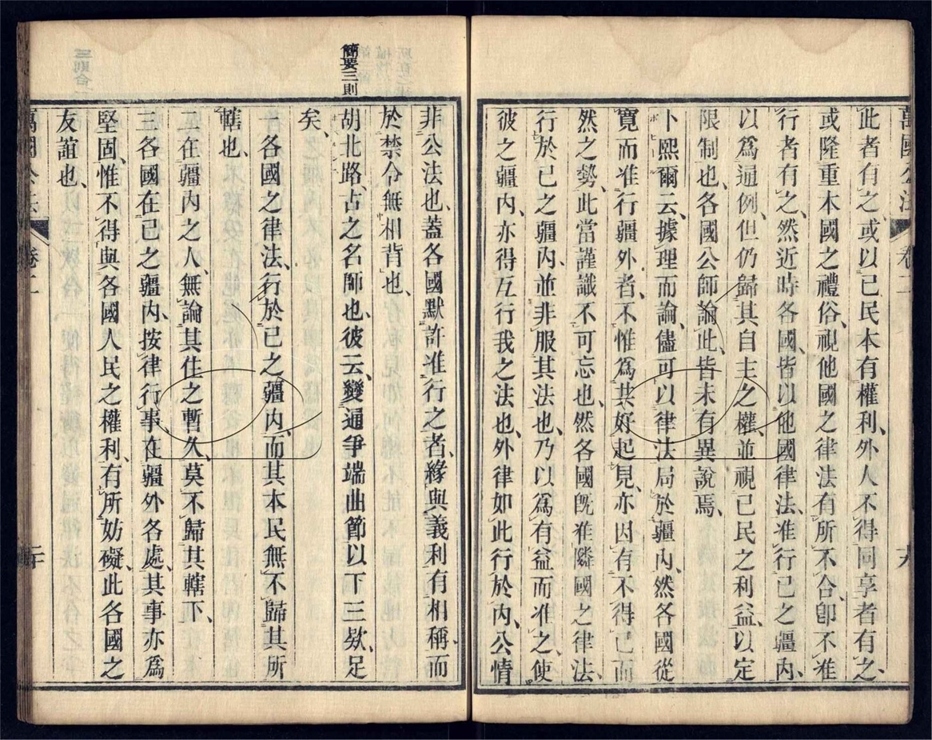 萬國公法 卷二 十九
此者有之、或以己民本有權利、外人不得同享者有之、
或隆重本國之禮俗、視他國之律法有所不合、卽不准
行者有之、然近時各國、皆以他國律法、准行己之疆內、
以爲通例、但仍歸其自主之權、並視己民之利益、以定
限制也、各國公師論此、皆未有異說焉、
卜熙爾云、據理而論、儘可以律法局於疆內、然各國從
寬而准行疆外者、不惟爲其好起見、亦因有不得已而
然之勢、此當謹識不可忘也、然各國旣准鄰國之律法、
行於己之疆內、並非服其法也、乃以爲有益而准之、使
彼之疆內、亦得互行我之法也、外律如此行於內、公情
非公法也、蓋各國默許准行之者、緣與義利有相稱、而
於禁令無相背也、
簡要三則
胡北路、古之名師也、彼云、變通爭端曲節、以下三欵足
矣、
一各國之律法、行於己之疆內、而其本民無不歸其所
轄也、
二在疆內之人、無論其住之暫久、莫不歸其轄下、
三各國在己之疆內、按律行事、在疆外各處、其事亦爲
堅固、惟不得與各國人民之權利、有所妨礙、此各國之
友誼也、
萬國公法 卷二 二十